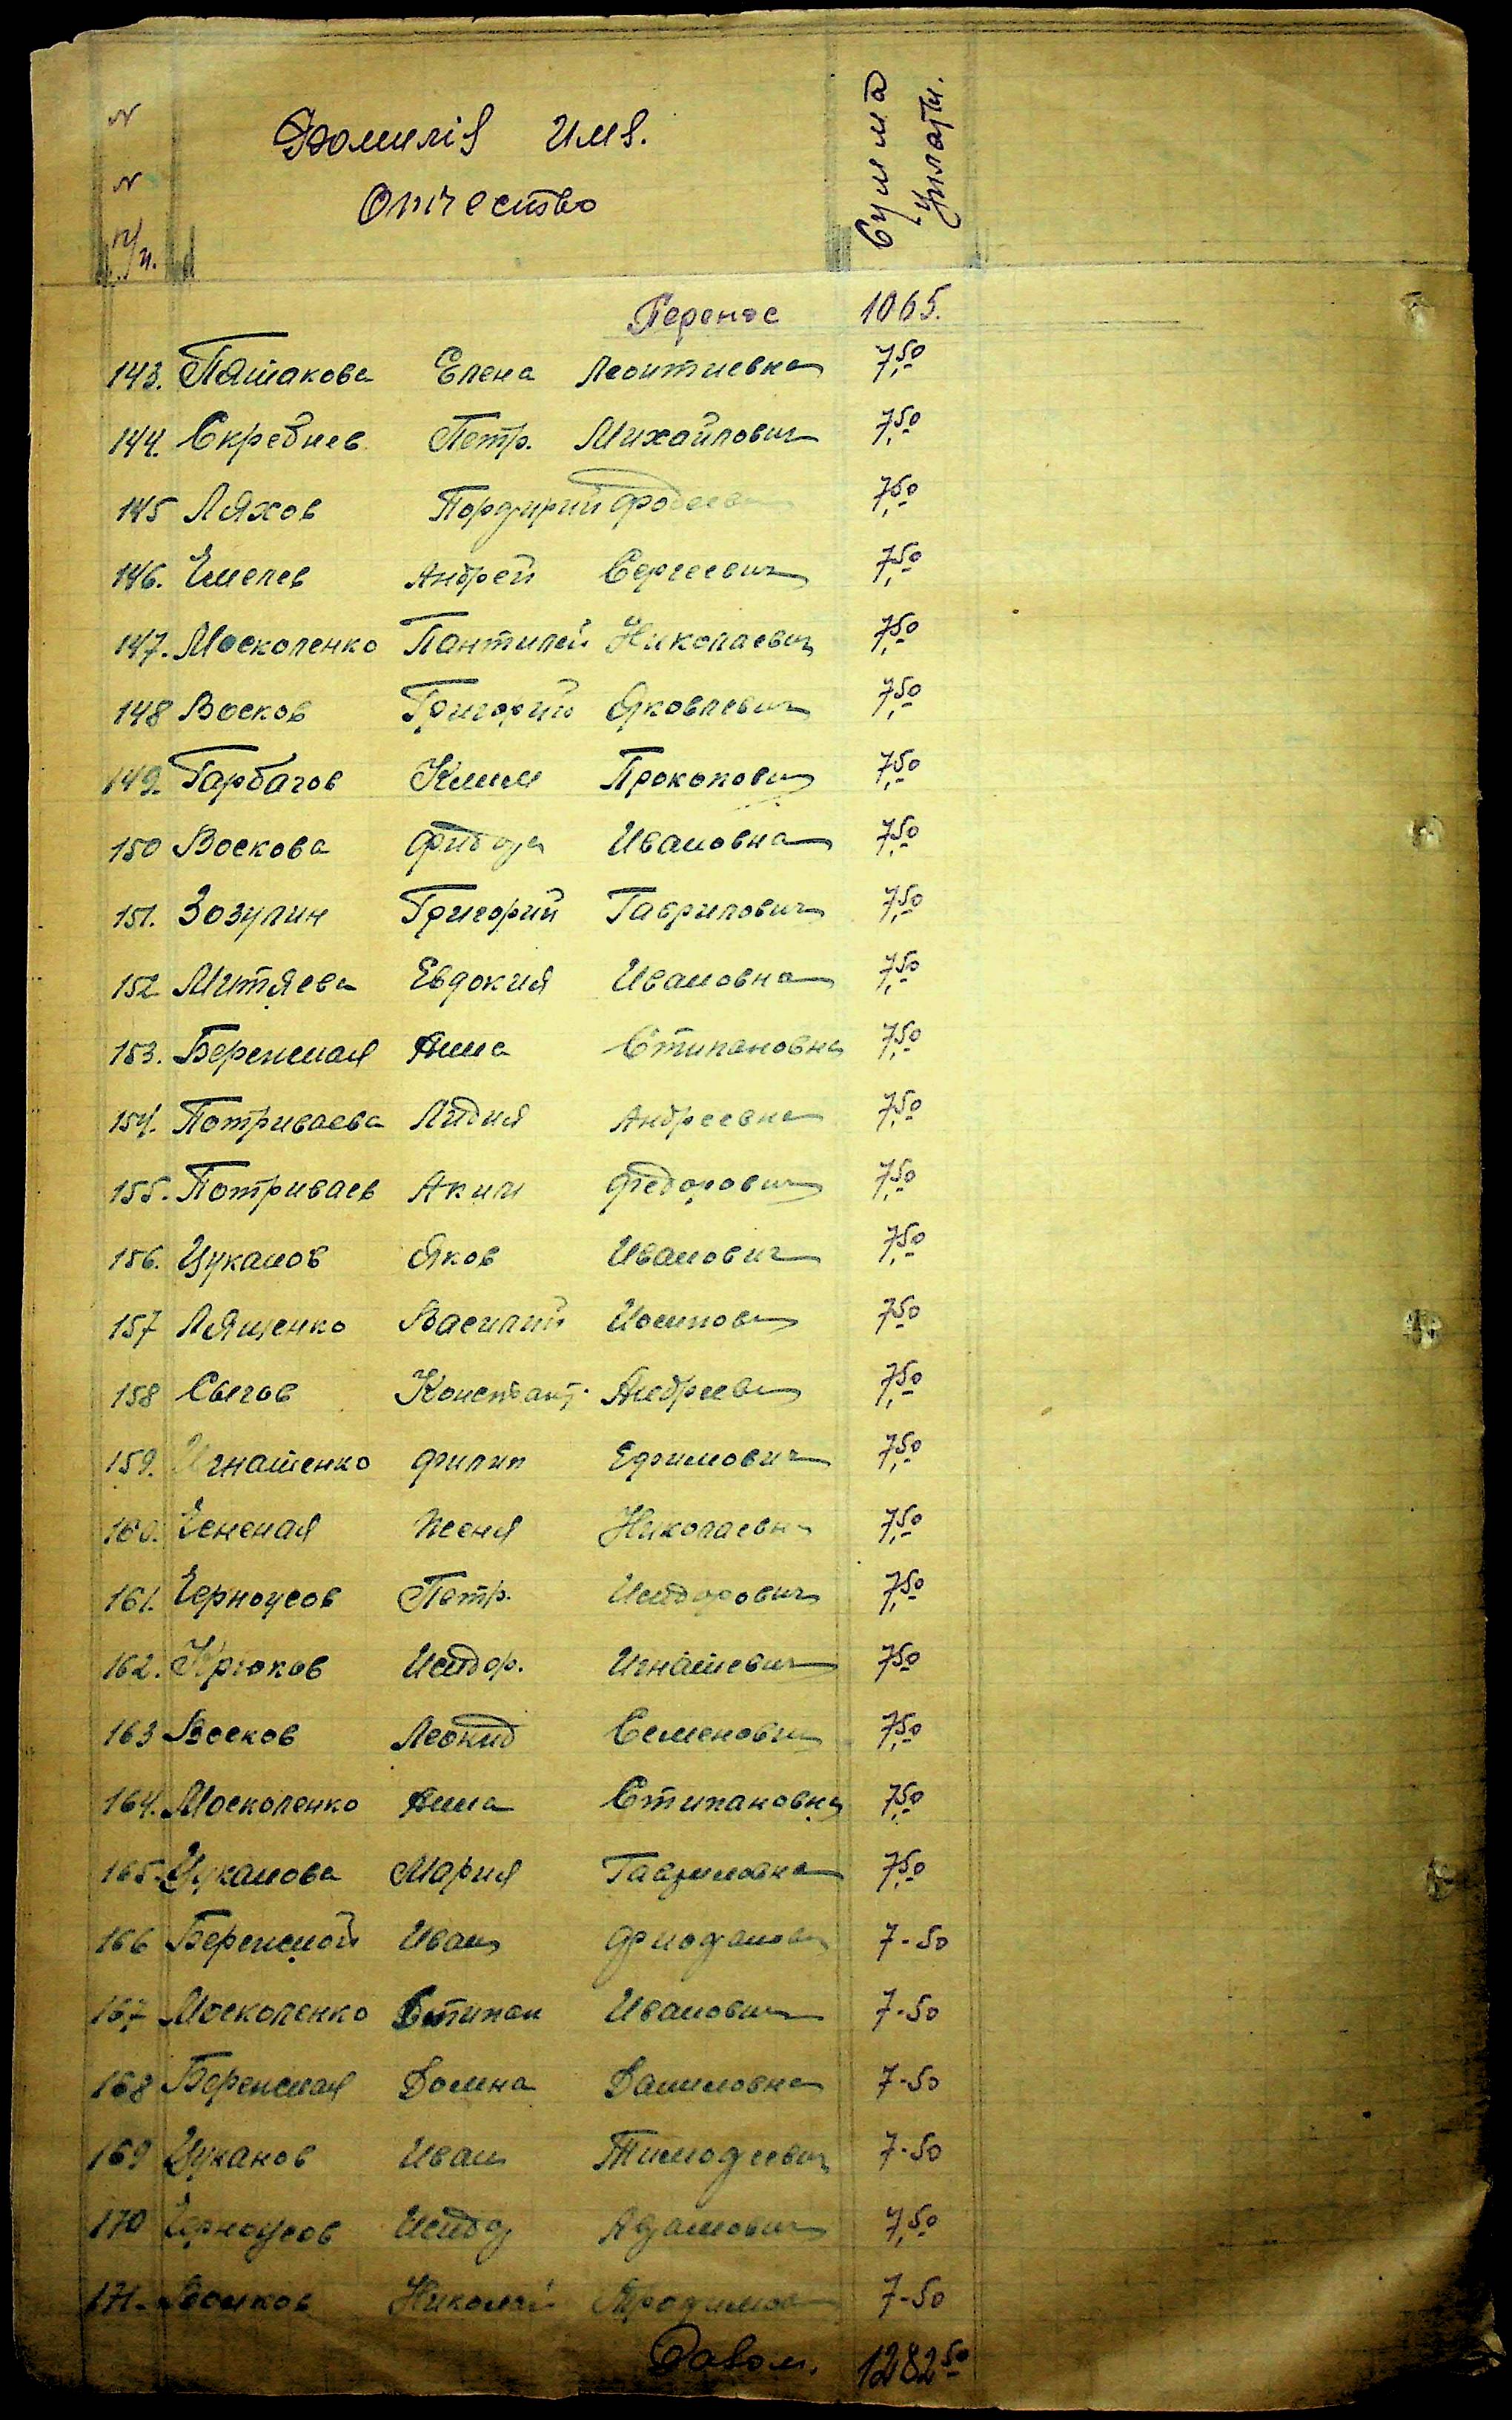 N
N
п/п.
Фамилія Имя.
Отчество
Сумма
уплати.
Перенос 1065.
143. Пятакова Елена Леонтиевна 7,50
144. Скребнев Петр. Михайлович 7,50
145 Ляхов Порфирий 7,50
146. Емелев Андрей Сергеевич 7,50
147. Москоленко Пантилей Николаевич 7,50
148 Восков Григорий Яковлевич 7,50
149. Гарбагов Клим Прокопович 7,50
150 Воскова Ивановна 7,50
151. Зозулин Григорий Гаврилович 7,50
152 Митяева Евдокия Ивановна 7,50
153. Бережная Анна Стипановна 7,50
154. Потриваева Лидия Андреевна 7,50
155. Потриваев Аким Федорович 7,50
156. Цуканов Яков Иванович 7,50
157 Лященко Василий Иосипович 7,50
158 Сычов Констант. Андреевич 7,50
159. Игнатенко Филип Ефимович 7,50
160. Ксеня Николаевна 7,50
161. Черноусов Петр. Исидорович 7,50
162. Крюков Исидор. Игнатевич 7,50
163 Восков Леонид Семенович 7,50
164. Москоленко Анна Стипановна 7,50
165. Цуканова Мария Гавриловна 7,50
166 Бережной Иван 7-50
167 Москоленко Стипан Иванович 7-50
168 Бережная Домна Даниловна 7-50
169 Цуканов Иван Тимофеевич 7-50
170 Черноусов Исидор Адамович 7,50
171. Николай 7-50
1282 50